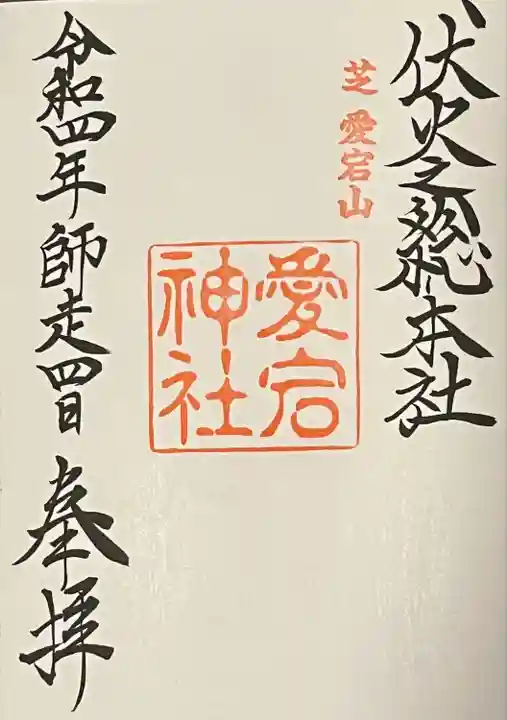 伏火之総本社
芝 愛宕山
愛宕
神社
令和四年 師走四日 奉拝